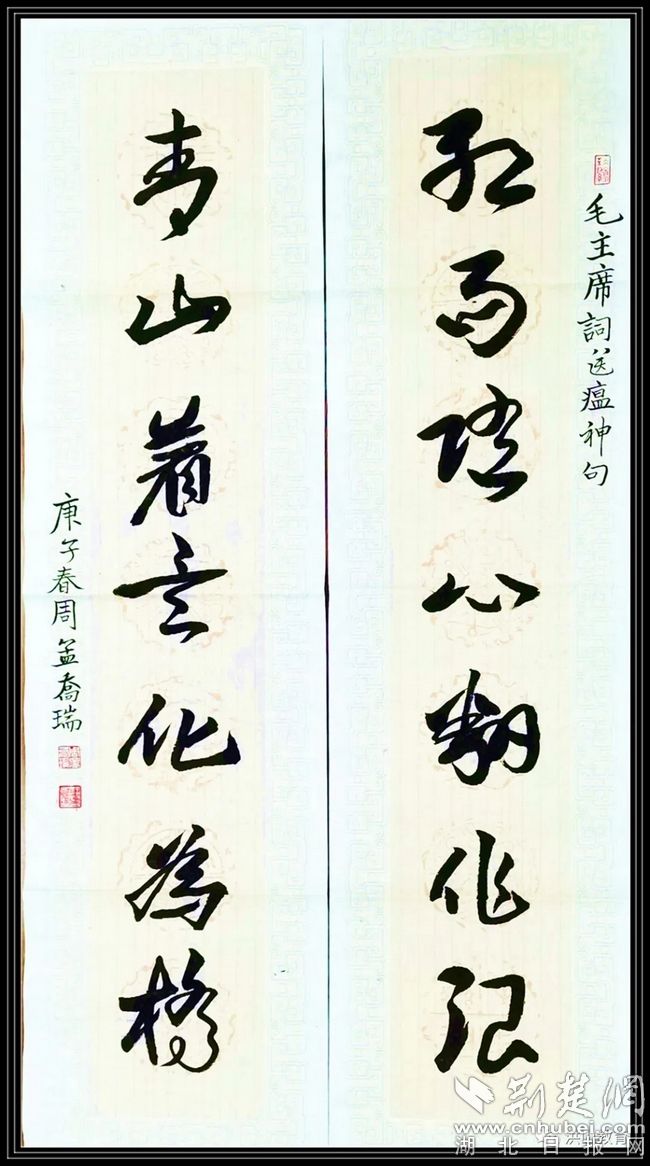 毛主席詞送瘟神句
红雨随心翻作浪
青山着意化為橋
庚子春周孟喬瑞
荆楚網
www.cnhubei.com
湖北日报网